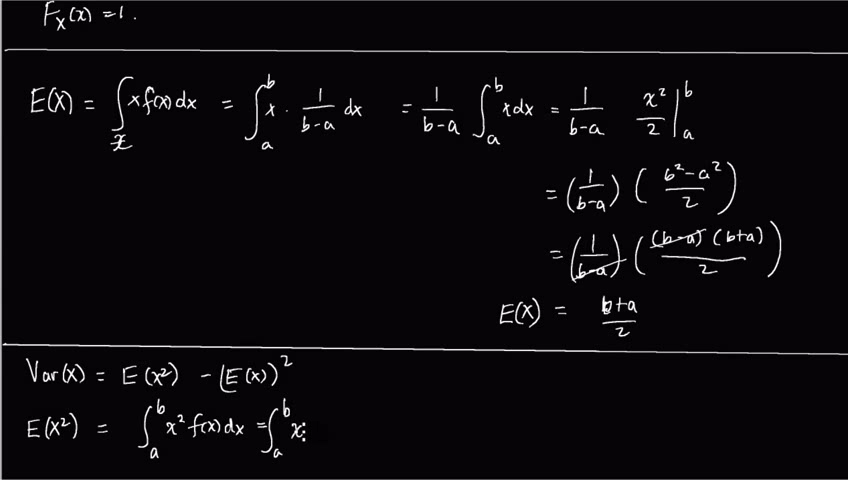 F_X(x) = 1.
E(X) = ∫_𝒳 x f(x) dx = ∫_a^b x · 1/(b-a) dx = 1/(b-a) ∫_a^b x dx = 1/(b-a) x²/2 |_a^b
= (1/(b-a)) ((b²-a²)/2)
= (1/(b-a)) ((b-a)(b+a)/2)
E(X) = (b+a)/2
Var(X) = E(X²) - (E(X))²
E(X²) = ∫_a^b x² f(x) dx = ∫_a^b x